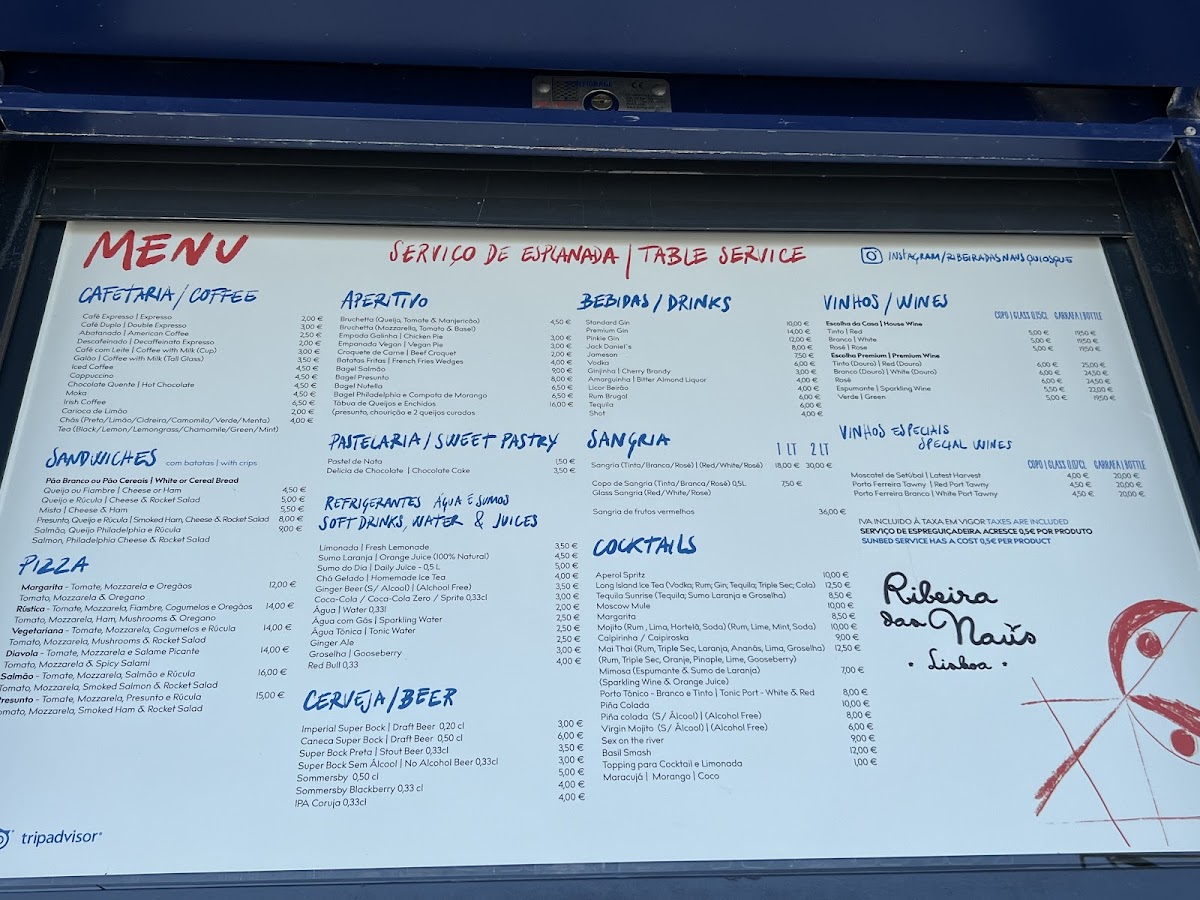 MENU
SERVIÇO DE ESPLANADA | TABLE SERVICE
INSTAGRAM/RIBEIRADASNAUSQUIOSQUE
CAFETARIA / COFFEE
Café Expresso | Espresso 2,00 €
Café Duplo | Double Espresso 3,00 €
Abatanado | American Coffee 2,50 €
Descafeinado | Decaffeinato Expresso 2,00 €
Café com Leite | Coffee with Milk (Cup) 3,00 €
Galão | Coffee with Milk (Tall Glass) 3,50 €
Iced Coffee 4,50 €
Cappuccino 4,50 €
Chocolate Quente | Hot Chocolate 4,50 €
Moka 4,50 €
Irish Coffee 6,50 €
Carioca de Limão 2,00 €
Chás (Preto/Limão/Cidreira/Camomila/Verde/Menta) 4,00 €
Tea (Black/Lemon/Lemongrass/Chamomile/Green/Mint)
SANDWICHES com batatas | with crips
Pão Branco ou Pão Cereais | White or Cereal Bread
Queijo ou Fiambre | Cheese or Ham 4,50 €
Queijo e Rúcula | Cheese & Rocket Salad 5,00 €
Mista | Cheese & Ham 5,50 €
Presunto, Queijo e Rúcula | Smoked Ham, Cheese & Rocket Salad 8,00 €
Salmão, Queijo Philadelphia e Rúcula 9,00 €
Salmon, Philadelphia Cheese & Rocket Salad
PIZZA
Margarita - Tomate, Mozzarela e Oregãos 12,00 €
Tomato, Mozzarela & Oregano
Rústica - Tomate, Mozzarela, Fiambre, Cogumelos e Oregãos 14,00 €
Tomato, Mozzarela, Ham, Mushrooms & Oregano
Vegetariana - Tomate, Mozzarela, Cogumelos e Rúcula 14,00 €
Tomato, Mozzarela, Mushrooms & Rocket Salad
Diavola - Tomate, Mozzarela e Salame Picante 14,00 €
Tomato, Mozzarela & Spicy Salami
Salmão - Tomate, Mozzarela, Salmão e Rúcula 16,00 €
Tomato, Mozzarela, Smoked Salmon & Rocket Salad
Presunto - Tomate, Mozzarela, Presunto e Rúcula 15,00 €
Tomato, Mozzarela, Smoked Ham & Rocket Salad
tripadvisor
APERITIVO
Bruchetta (Queijo, Tomate & Manjericão) 4,50 €
Bruchetta (Mozzarella, Tomato & Basel)
Empada Galinha | Chicken Pie 3,00 €
Empanada Vegan | Vegan Pie 3,00 €
Croquete de Carne | Beef Croquet 3,00 €
Batatas Fritas | French Fries Wedges 4,00 €
Bagel Salmão 9,00 €
Bagel Presunto 8,00 €
Bagel Nutella 6,50 €
Bagel Philadelphia e Compota do Morango 6,50 €
Tábua de Queijos e Enchidos 16,00 €
(presunto, chourição e 2 queijos curados
PASTELARIA / SWEET PASTRY
Pastel de Nata 1,50 €
Delícia de Chocolate | Chocolate Cake 3,50 €
REFRIGERANTES ÁGUA E SUMOS
SOFT DRINKS, WATER & JUICES
Limonada | Fresh Lemonade 3,50 €
Sumo Laranja | Orange Juice (100% Natural) 4,50 €
Sumo do Dia | Daily Juice - 0,5 L 5,00 €
Chá Gelado | Homemade Ice Tea 4,00 €
Ginger Beer (S/ Alcool) | (Alchool Free) 3,50 €
Coca-Cola / Coca-Cola Zero / Sprite 0,33cl 3,00 €
Água | Water 0,33l 2,00 €
Água com Gás | Sparkling Water 2,50 €
Água Tônica | Tonic Water 2,50 €
Ginger Ale 2,50 €
Groselha | Gooseberry 3,00 €
Red Bull 0,33 4,00 €
CERVEJA / BEER
Imperial Super Bock | Draft Beer 0,20 cl 3,00 €
Caneca Super Bock | Draft Beer 0,50 cl 6,00 €
Super Bock Preta | Stout Beer 0,33cl 3,50 €
Super Bock Sem Álcool | No Alcohol Beer 0,33cl 3,00 €
Sommersby 0,50 cl 5,00 €
Sommersby Blackberry 0,33 cl 4,00 €
IPA Coruja 0,33cl 4,00 €
BEBIDAS / DRINKS
Standard Gin 10,00 €
Premium Gin 14,00 €
Pinkie Gin 12,00 €
Jack Daniel's 8,00 €
Jameson 7,50 €
Vodka 6,00 €
Ginjinha | Cherry Brandy 3,00 €
Amarguinha | Bitter Almond Liquor 4,00 €
Licor Beirão 4,00 €
Rum Brugal 6,00 €
Tequila 6,00 €
Shot 4,00 €
SANGRIA 1 LT 2 LT
Sangria (Tinto/Branca/Rosé) | (Red/White/Rosé) 18,00 € 30,00 €
Copo de Sangria (Tinta/Branca/Rosé) 0,5L 7,50 €
Glass Sangria (Red/White/Rosé)
Sangria de frutos vermelhos 36,00 €
COCKTAILS
Aperol Spritz 10,00 €
Long Island Ice Tea (Vodka; Rum; Gin; Tequila; Triple Sec; Cola) 12,50 €
Tequila Sunrise (Tequila; Sumo Laranja e Groselha) 8,50 €
Moscow Mule 10,00 €
Margarita 8,50 €
Mojito (Rum , Lima, Hortelã, Soda) (Rum, Lime, Mint, Soda) 10,00 €
Caipirinha / Caipiroska 9,00 €
Mai Thai (Rum, Triple Sec, Laranja, Ananás, Lima, Groselha) 12,50 €
(Rum, Triple Sec, Oranje, Pinaple, Lime, Gooseberry)
Mimosa (Espumante & Sumo de Laranja) 7,00 €
(Sparkling Wine & Orange Juice)
Porto Tônico - Branco e Tinto | Tonic Port - White & Red 8,00 €
Piña Colada 10,00 €
Piña colada (S/ Álcool) | (Alcohol Free) 8,00 €
Virgin Mojito (S/ Àlcool) | (Alcohol Free) 6,00 €
Sex on the river 9,00 €
Basil Smash 12,00 €
Topping para Cocktail e Limonada 1,00 €
Maracujá | Morango | Coco
VINHOS / WINES
COPO | GLASS 0,15CL GARRAFA | BOTTLE
Escolha da Casa | House Wine
Tinto | Red 5,00 € 19,50 €
Branco | White 5,00 € 19,50 €
Rosé | Rose 5,00 € 19,50 €
Escolha Premium | Premium Wine
Tinto (Douro) | Red (Douro) 6,00 € 25,00 €
Branco (Douro) | White (Douro) 6,00 € 24,50 €
Rosé 6,00 € 24,50 €
Espumante | Sparkling Wine 5,50 € 22,00 €
Verde | Green 5,00 € 19,50 €
VINHOS ESPECIAIS
SPECIAL WINES
COPO | GLASS 0,17CL GARRAFA | BOTTLE
Moscatel de Setúbal | Latest Harvest 4,00 € 20,00 €
Porto Ferreira Tawny | Red Port Tawny 4,50 € 20,00 €
Porto Ferreira Branco | White Port Tawny 4,50 € 20,00 €
IVA INCLUIDO À TAXA EM VIGOR TAXES ARE INCLUDED
SERVIÇO DE ESPREGUIÇADEIRA ACRESCE 0,5€ POR PRODUTO
SUNBED SERVICE HAS A COST 0,5€ PER PRODUCT
Ribeira
das Naus
• Lisboa •